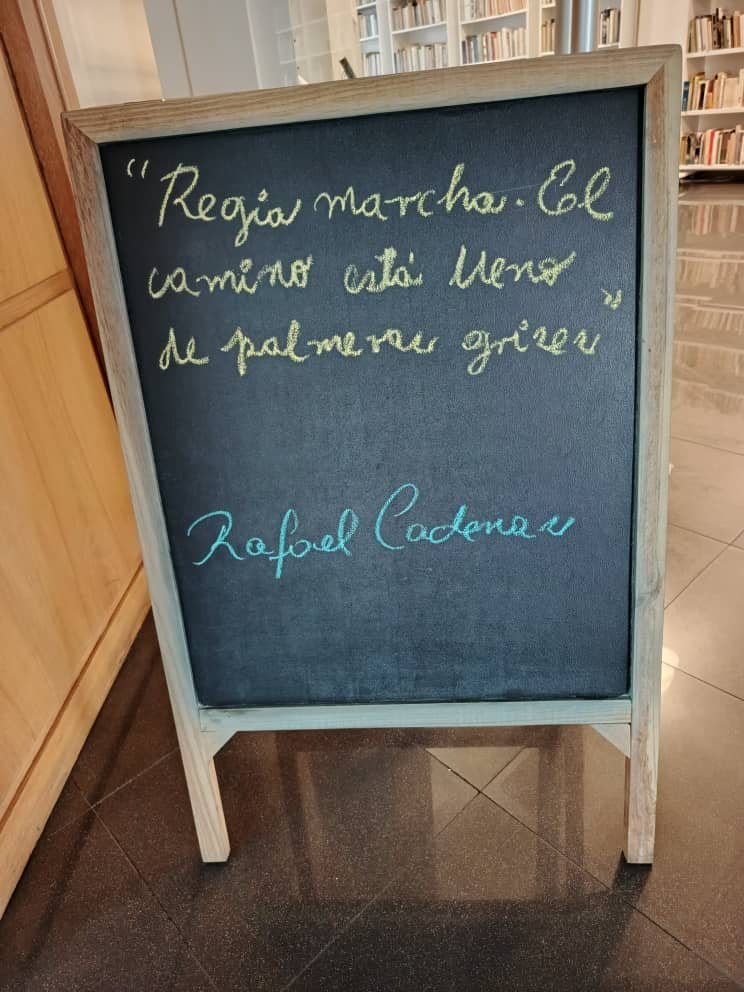 "Regia marcha. El
camino está lleno
de palmeras grises"
Rafael Cadenas